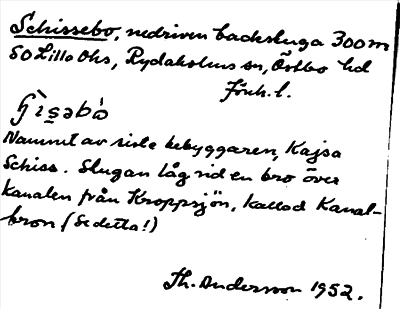 Schissebo, nedriven backstuga 300 m
SO Lilla Ohs, Rydaholms sn, Östbo hd
Jönk. l.
Namnet av siste bebyggaren, Kajsa
Schiss. Stugan låg vid en bro över
kanalen från Kroppsjön, kallad Kanal-
bron (Se detta!)
Th. Andersson 1952.